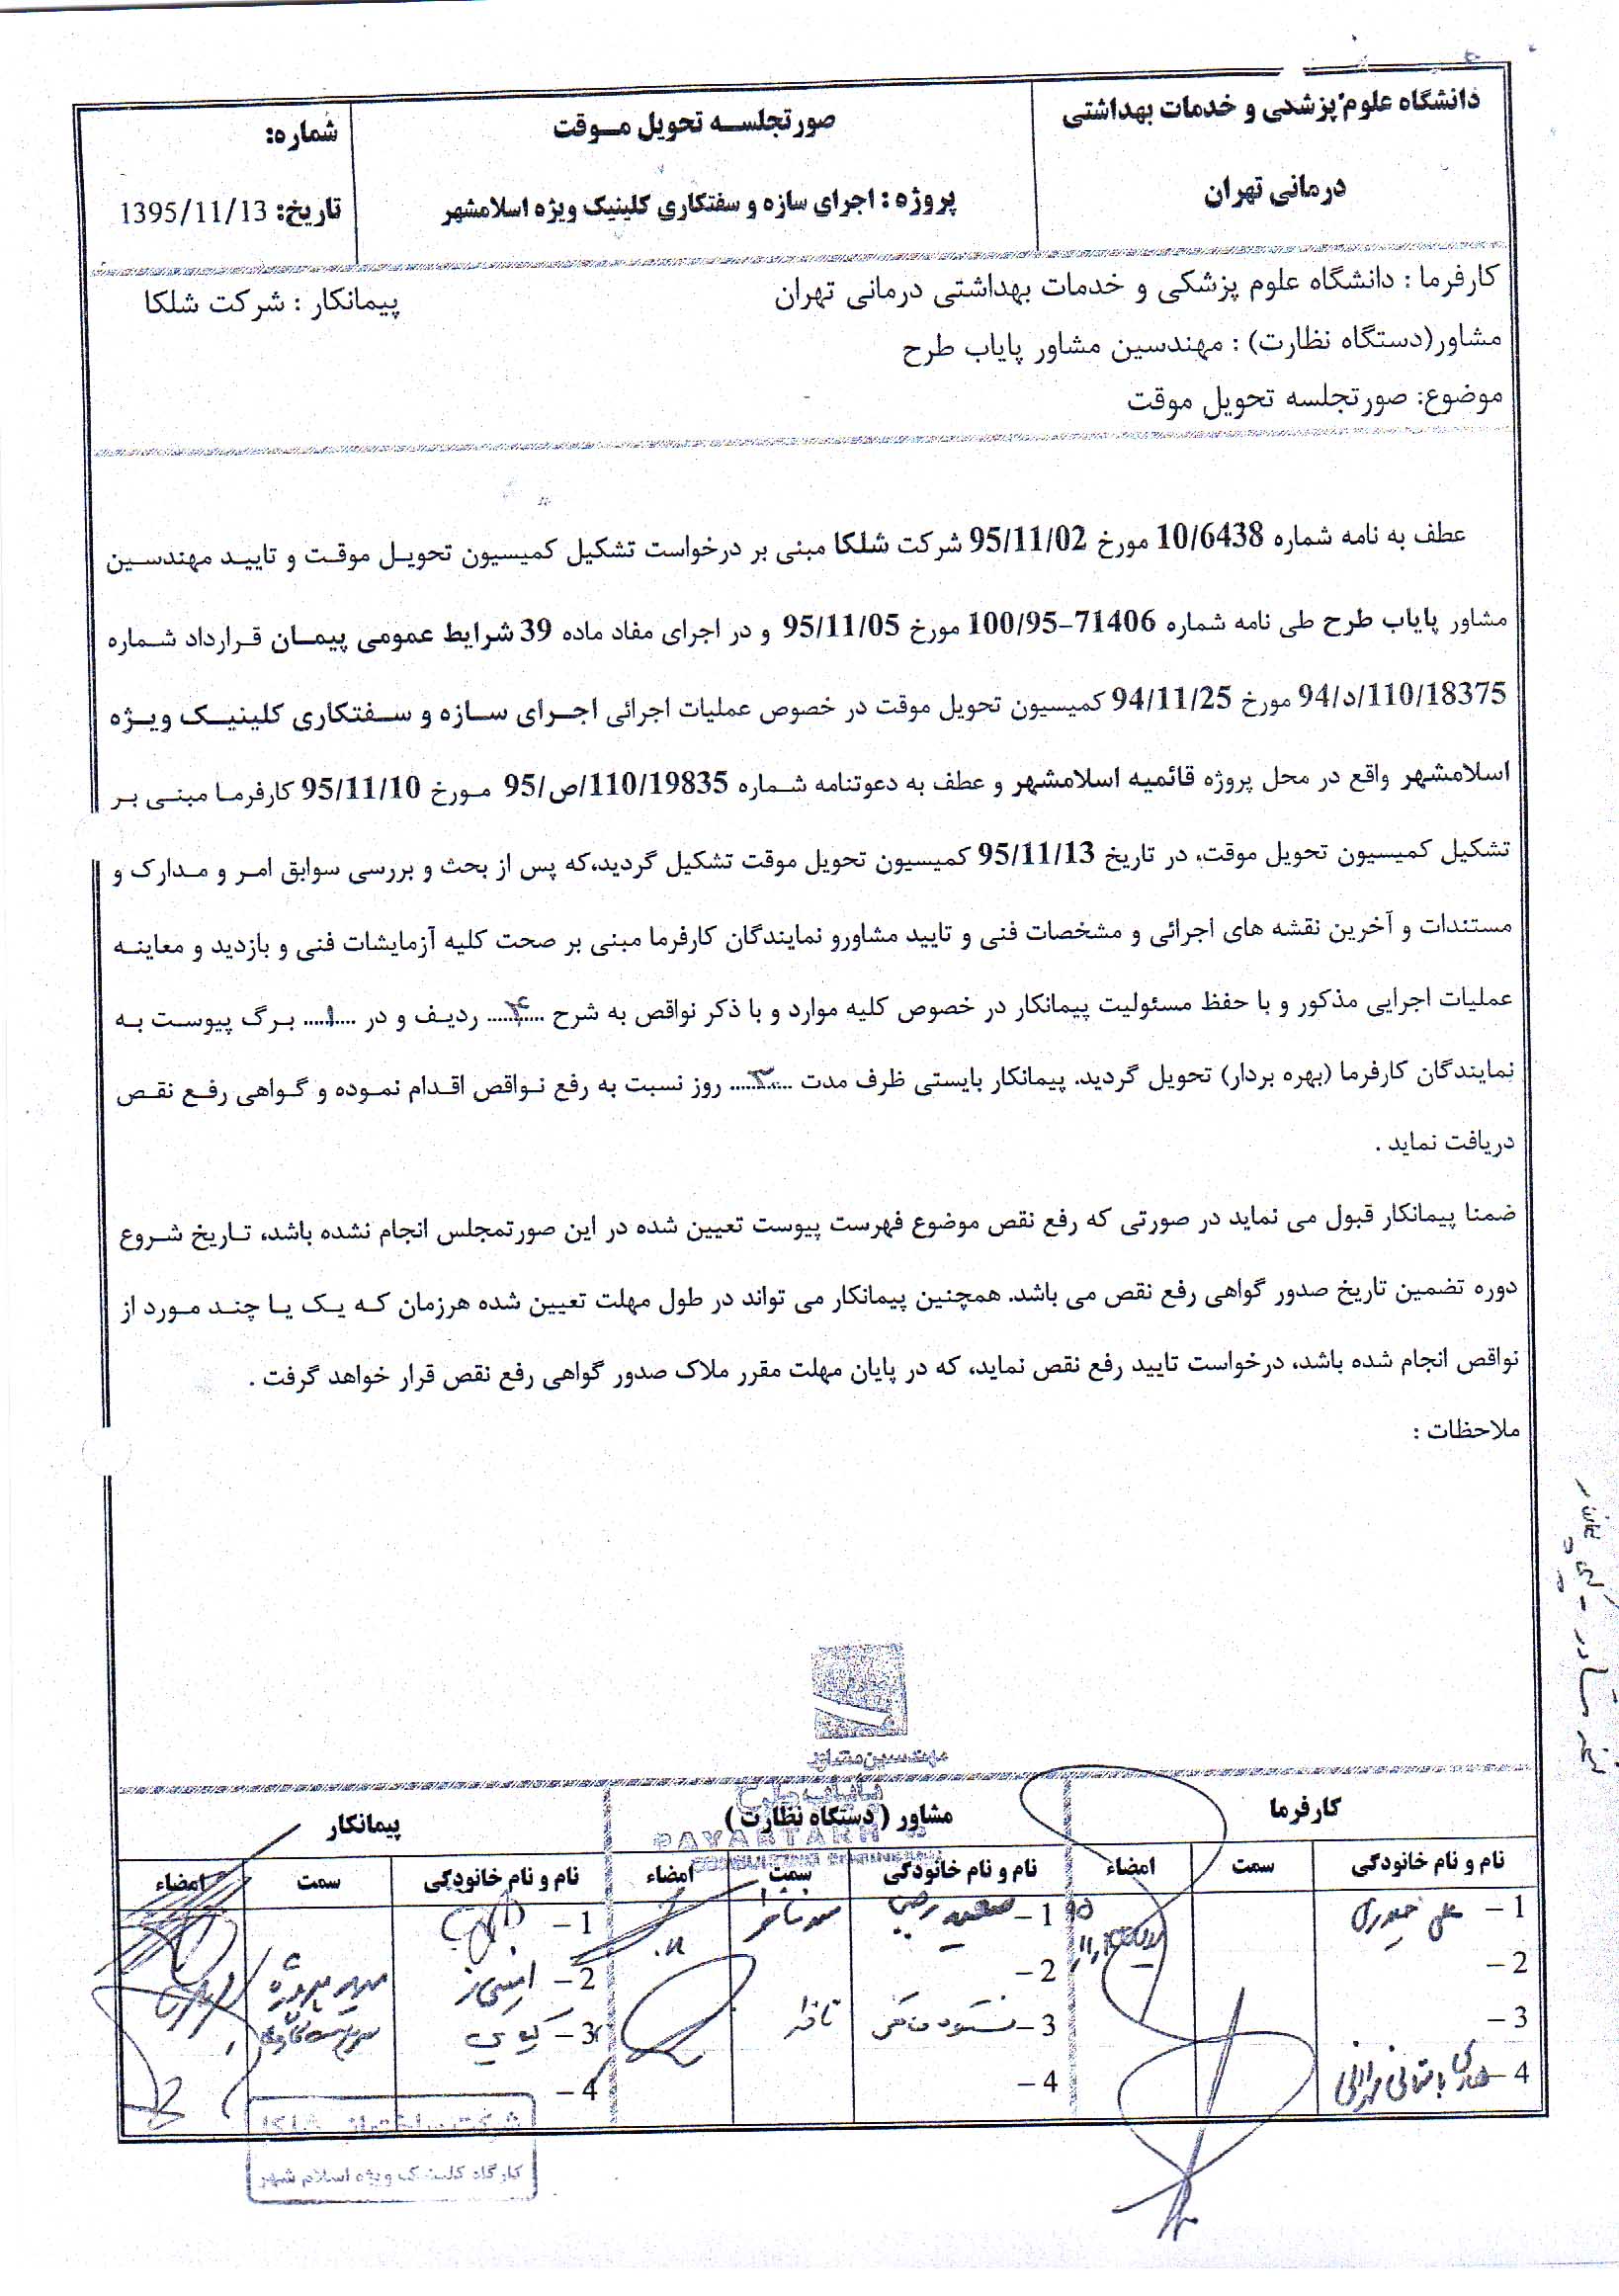 دانشگاه علوم پزشکی و خدمات بهداشتی
درمانی تهران
صورتجلسه تحویل موقت
پروژه : اجرای سازه و سفتکاری کلینیک ویژه اسلامشهر
شماره:
تاریخ: 1395/11/13
کارفرما : دانشگاه علوم پزشکی و خدمات بهداشتی درمانی تهران
پیمانکار : شرکت شلکا
مشاور(دستگاه نظارت) : مهندسین مشاور پایاب طرح
موضوع: صورتجلسه تحویل موقت
عطف به نامه شماره 10/6438 مورخ 95/11/02 شرکت شلکا مبنی بر درخواست تشکیل کمیسیون تحویل موقت و تایید مهندسین
مشاور پایاب طرح طی نامه شماره 71406-100/95 مورخ 95/11/05 و در اجرای مفاد ماده 39 شرایط عمومی پیمان قرارداد شماره
94/د/110/18375 مورخ 94/11/25 کمیسیون تحویل موقت در خصوص عملیات اجرائی اجرای سازه و سفتکاری کلینیک ویژه
اسلامشهر واقع در محل پروژه قائمیه اسلامشهر و عطف به دعوتنامه شماره 95/ص/110/19835 مورخ 95/11/10 کارفرما مبنی بر
تشکیل کمیسیون تحویل موقت، در تاریخ 95/11/13 کمیسیون تحویل موقت تشکیل گردید،که پس از بحث و بررسی سوابق امر و مدارک و
مستندات و آخرین نقشه های اجرائی و مشخصات فنی و تایید مشاورو نمایندگان کارفرما مبنی بر صحت کلیه آزمایشات فنی و بازدید و معاینه
عملیات اجرایی مذکور و با حفظ مسئولیت پیمانکار در خصوص کلیه موارد و با ذکر نواقص به شرح ....۴.... ردیف و در ....۱.... برگ پیوست به
نمایندگان کارفرما (بهره بردار) تحویل گردید. پیمانکار بایستی ظرف مدت ........ روز نسبت به رفع نواقص اقدام نموده و گواهی رفع نقص
دریافت نماید .
ضمنا پیمانکار قبول می نماید در صورتی که رفع نقص موضوع فهرست پیوست تعیین شده در این صورتمجلس انجام نشده باشد، تاریخ شروع
دوره تضمین تاریخ صدور گواهی رفع نقص می باشد. همچنین پیمانکار می تواند در طول مهلت تعیین شده هرزمان که یک یا چند مورد از
نواقص انجام شده باشد، درخواست تایید رفع نقص نماید، که در پایان مهلت مقرر ملاک صدور گواهی رفع نقص قرار خواهد گرفت .
ملاحظات :
مهندسین مشاور
پایاب طرح
PAYAB TARH
CONSULTING ENGINEERS
کارفرما
مشاور ( دستگاه نظارت )
پیمانکار
نام و نام خانودگی سمت امضاء
نام و نام خانودگی سمت امضاء
نام و نام خانودگی سمت امضاء
1 – علی حیدری
2 –
3 –
4 – هادی باستانی
1 – سعید رجبی
2 –
3 –
4 –
1 –
2 –
3 –
4 –
شرکت ساختمانی شلکا
کارگاه کلینیک ویژه اسلام شهر